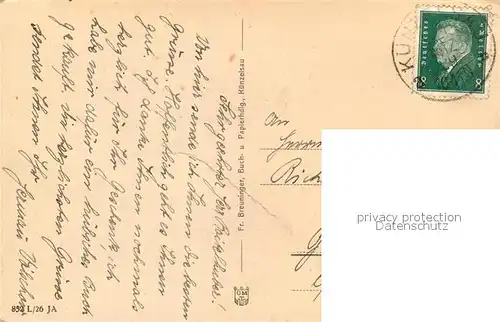 Sehr geehrter Herr
Von hier sende ich Ihnen die besten
Grüsse. Hoffentlich geht es Ihnen
gut. Ich danke Ihnen nochmals
herzlich für Ihr Geschenk, ich
habe mir dafür ein hübsches Buch
gekauft. Die herzlichsten Grüsse
sendet Ihnen Ihr
Hermann
852 L/26 JA
Fr. Breuninger, Buch- u Papierhdlg., Künzelsau
Deutsches Reich
8 8
KÜN
An
Herrn
privacy protection
www.ak-ansichtskarten.de